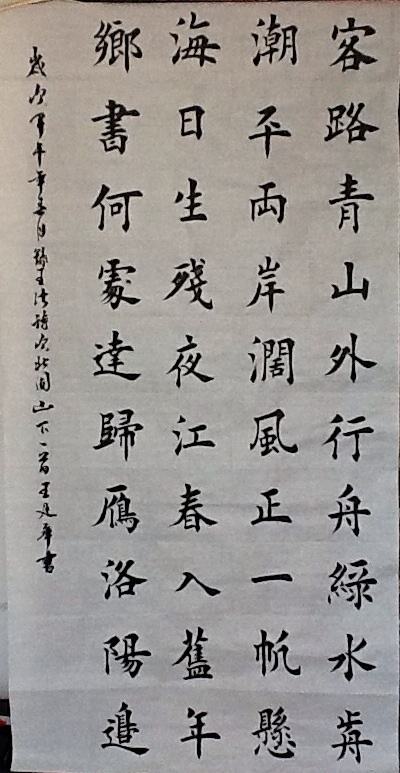 客路青山外行舟綠水歬
潮平兩岸濶風正一帆懸
海日生殘夜江春入舊年
鄉書何處達歸雁洛陽邉
歲次甲午年五月錄王灣詩次北固山下一首王廷華書